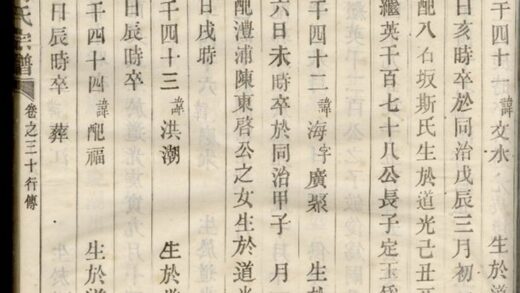 千四十 諱文水 生於道
日亥時卒於同治戊辰三月初
配八石坂斯氏生於道光己丑
繼英千百七十八公長子定
千四十二諱海字廣聚 生於
六日未時卒於同治甲子 月
配澧浦陳東啓公之女生於道光
日戌時
千四十三諱洪潮 生於道
日辰時卒
千四十四諱配福 生於道
日辰時卒 葬
氏宗譜
卷之三十行傳